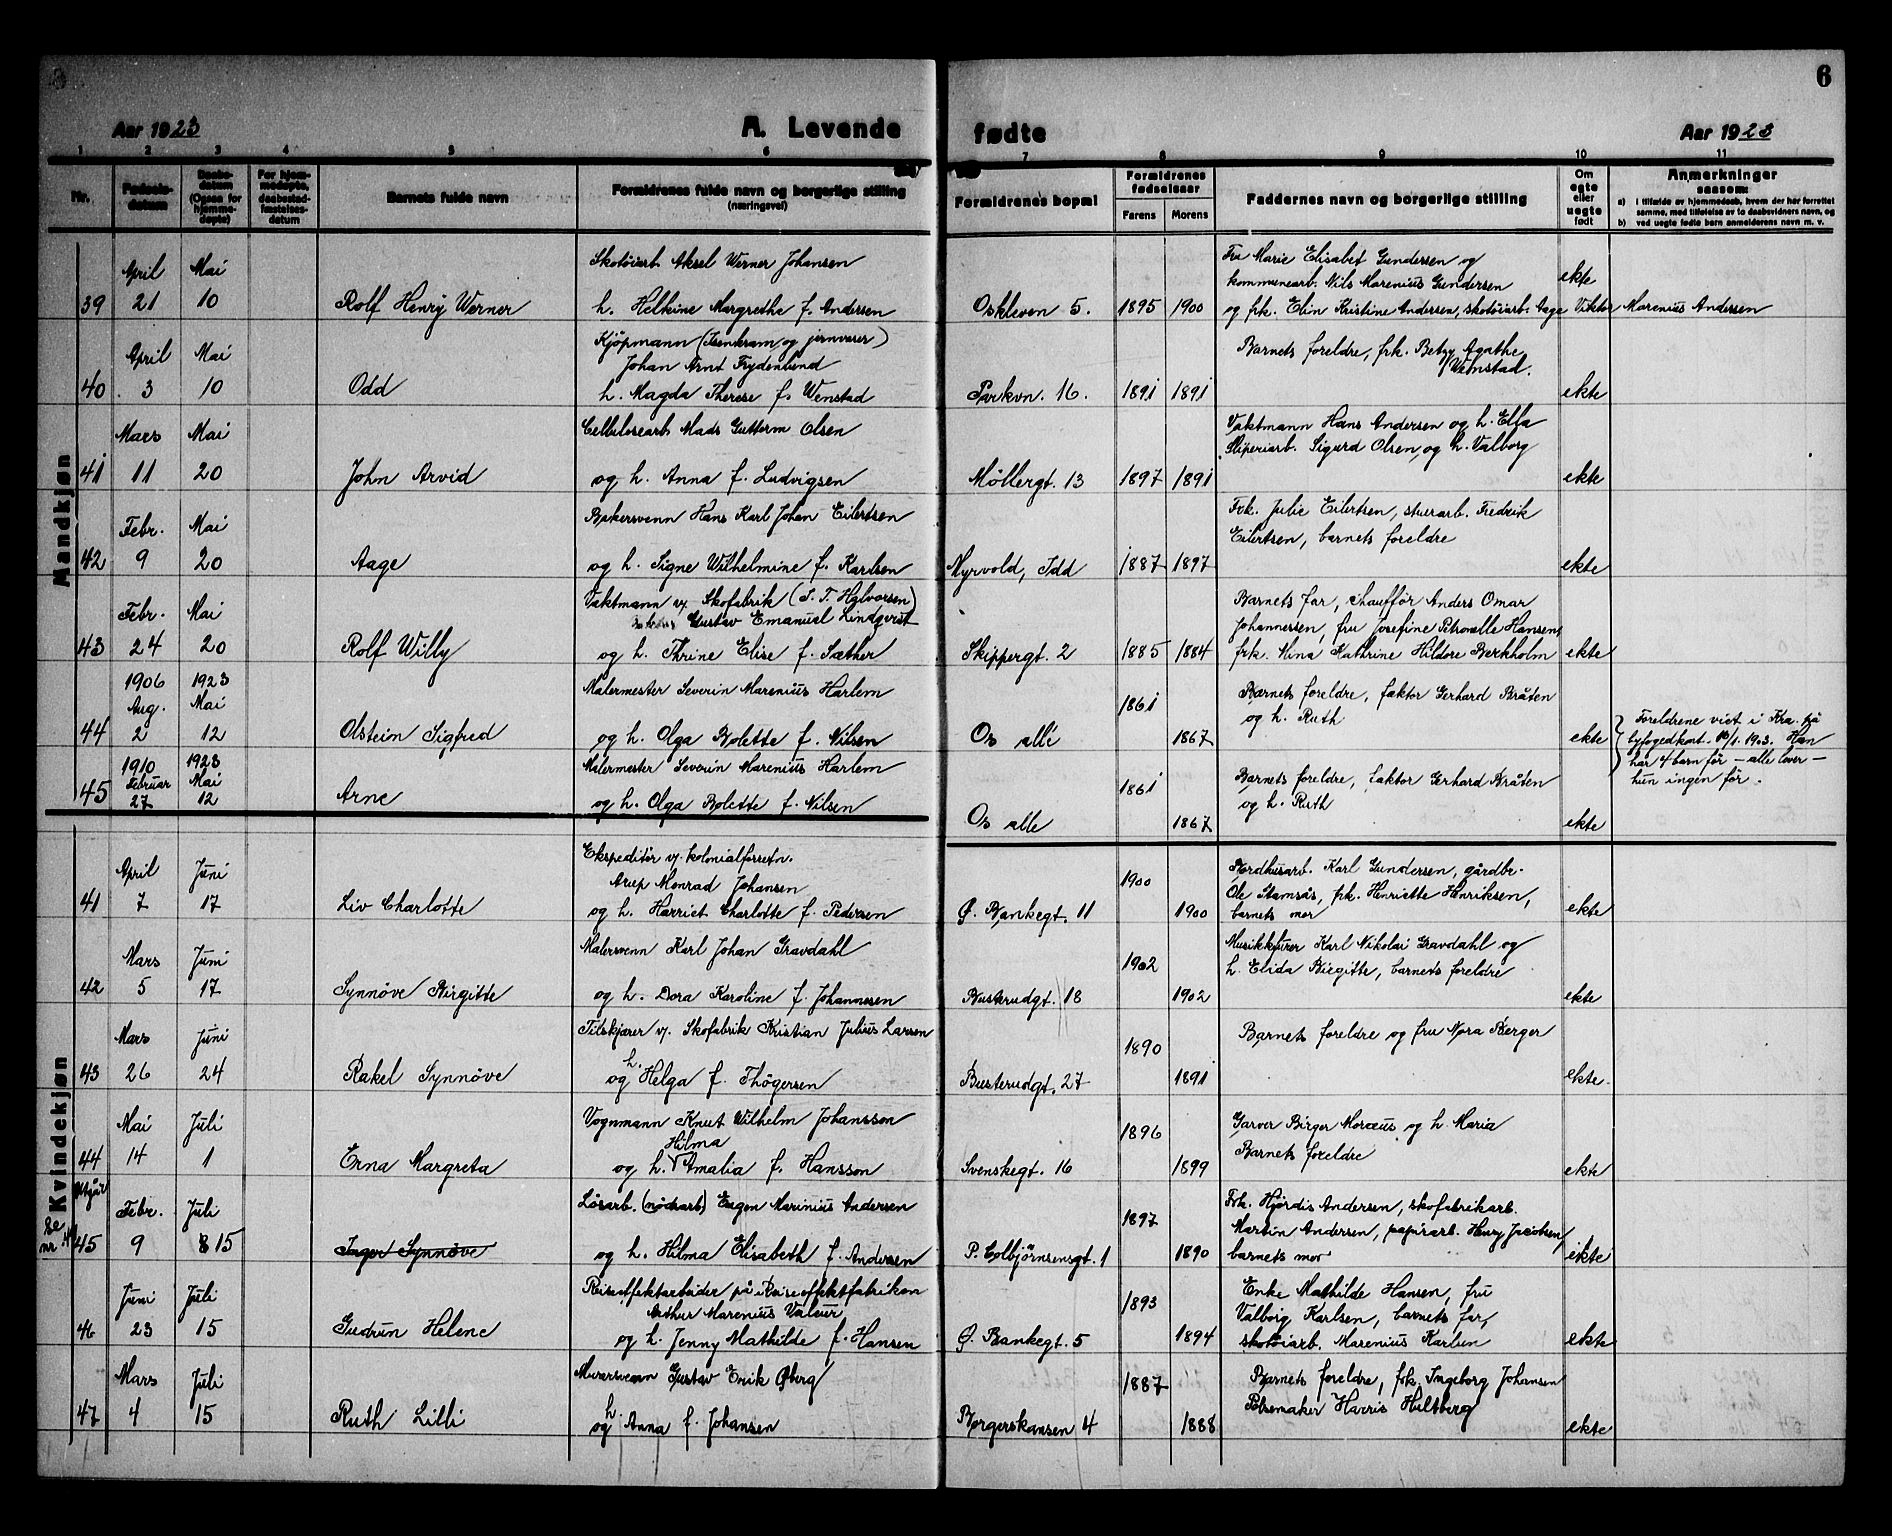 6
Aar 1923 A. Levende fødte Aar 1923
1 2 3 4 5 6 7 8 9 10 11
Nr. Fødsels-datum Daabs-datum (Ogsaa for hjemme-døpte) For hjem-medøpte, daabestad-fæstelses-datum Barnets fulde navn Forældrenes fulde navn og borgerlige stilling (næringsvei) Forældrenes bopæl Forældrenes fødselsaar Farens Morens Faddernes navn og borgerlige stilling Om egte eller uegte født Anmerkninger saasom:
a) i tilfælde av hjemmedaab, hvem der har forrettet samme, med tilføielse av to daabsvidners navn, og
b) ved uegte fødte barn anmelderens navn m. v.
Mandkjøn
April Mai Skotöiarb. Aksel Werner Johansen Fru Marie Elisabet Gundersen og
kommunearb. Nils Marenius Gundersen ekte
39 21 10 Rolf Henry Werner h. Helkine Margrethe f. Andersen Oskleven 5. 1895 1900 og frk. Elin Kristine Andersen, skotöiarb. Aage Viktor Marenius Andersen
April Mai Kjöpmann (Isenkram og jernvarer) Barnets foreldre, frk. Betzy Agathe
Johan Arnt Frydenlund Wenstad.
40 3 10 Odd h. Magda Therese f. Wenstad Parkvn. 16. 1891 1891 ekte
Mars Mai Cellulosearb. Mads Guttorm Olsen Vaktmann Hans Andersen og h. Elfa
Sliperiarb. Sigurd Olsen, og h. Valborg
41 11 20 John Arvid og h. Anna f. Ludvigsen Möllergt. 13 1897 1891 ekte
Febr. Mai Bakersvenn Hans Karl Johan Eilertsen Frk. Julie Eilertsen, stuerarb. Fredrik
Eilertsen, barnets foreldre
42 9 20 Aage og h. Signe Wilhelmine f. Karlsen Myrvold, Idd 1887 1897 ekte
Febr. Mai Vaktmann v. Skofabrik (S. T. Halvorsen) Barnets far, chaufför Anders Omar
Gustav Emanuel Lindqvist Johannessen, fru Josefine Petronelle Hansen,
43 24 20 Rolf Willy og h. Thrine Elise f. Sæther Skippergt. 2 1885 1884 frk. Mina Kathrine Hildore Berkholm ekte
1906 1923 Malermester Severin Marenius Harlem Barnets foreldre, faktor Gerhard Bråten
Aug. Mai 1861 og h. Ruth
44 2 12 Olstein Sigfred og h. Olga Bolette f. Nilsen Os allé 1867 ekte
Foreldrene viet i Kra. på
byfogedkont. 10/1. 1903. Han
har 4 barn för – alle lever –
hun ingen för.
1910 1923 Malermester Severin Marenius Harlem Barnets foreldre, faktor Gerhard Bråten
Februar Mai 1861 og h. Ruth
45 27 12 Arne og h. Olga Bolette f. Nilsen Os alle 1867 ekte
Kvindekjøn
April Juni Ekspeditör v. kolonialforretn. 1900 Karl Gundersen, gårdbr.
Arup Monrad Johansen Ole Stamsås, frk. Henriette Henriksen,
41 7 17 Liv Charlotte og h. Harriet Charlotte f. Pedersen Ø. Bankegt. 11 1900 barnets mor ekte
Mars Juni Malersvenn Karl Johan Gravdahl 1902 Karl Nikolai Gravdahl og
h. Elida Birgitte, barnets foreldre
42 5 17 Synnöve Birgitte og h. Dora Karoline f. Johannesen Busterudgt. 18 1902 ekte
Mars Juni Tilskjærer v. Skofabrik Kristian Julius Larsen 1890 Barnets foreldre og fru Nora Berger
43 26 24 Rakel Synnöve og h. Helga f. Thögersen Busterudgt. 27 1891 ekte.
Mai Juli Vognmann Knut Wilhelm Johansson 1896 Garver Birger Moræus og h. Maria
Hilma Barnets foreldre
44 14 1 Erna Margreta og h. Amalia f. Hansson Svenskegt. 16 1899 ekte
Utgår
Se nr.
Febr. Juli Lösarb. (nödsarb) Eugen Marinius Andersen 1897 Frk. Hjördis Andersen, skofabrikarb.
Martin Andersen, papirarb. Henry Jacobsen,
45 9 8 15 Inger Synnöve og h. Hilma Elisabeth f. Andersen P. Colbjörnsensgt. 1 1890 barnets mor ekte
Juni Juli Reiseeffektarbeider på Reiseeffektfabriken 1893 Enke Mathilde Hansen, fru
Arthur Marenius Valeur Valborg Karlsen, barnets far,
46 23 15 Gudrun Helene og h. Jenny Mathilde f. Hansen Ø. Bankegt. 5 1894 skotöiarb. Marenius Karlsen ekte
Mars Juli Murersvenn Gustav Enik Öberg 1887 Barnets foreldre, frk. Ingeborg Johansen
Pölsemaker Harris Hultberg
47 4 15 Ruth Lilli og h. Anna f. Johansen Borgerskansen 4 1888 ekte